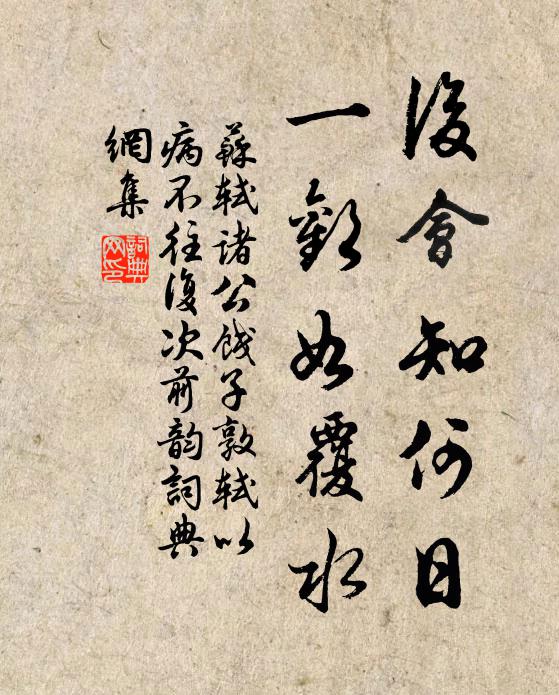 後會知何日
一歡如覆水
蘇軾諸公餞子敦軾以
病不往復次前韵詞典
網集
詞典
网印